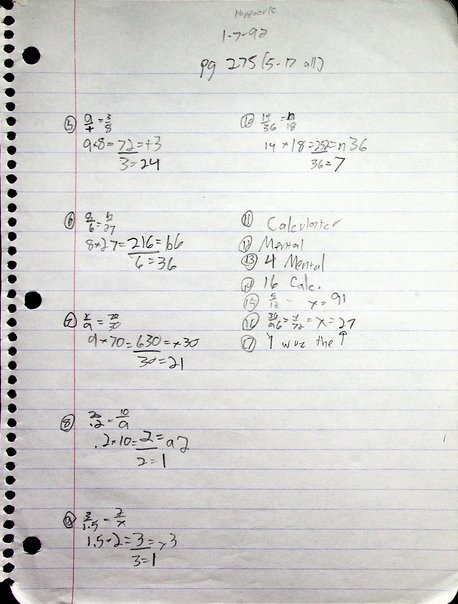 Homework
1-7-92
pg 275 (5-17 all)
5 9/t = 3/8
9×8=72=t3
3=24
6 8/6 = b/27
8×27=216=b6
6=36
7 x/9 = 70/30
9×70=630=x30
30=21
8 .2 = 10/a
.2×10=2=a2
2=1
9 3/1.5 = 2/x
1.5×2=3=x3
3=1
10 14/36 = n/18
14×18=252=n36
36=7
11 Calculator
12 Mental
13 4 Mental
14 16 Calc.
15 x=91
16 36/96 = x/72 = x=27
17 1 wuz the ↑